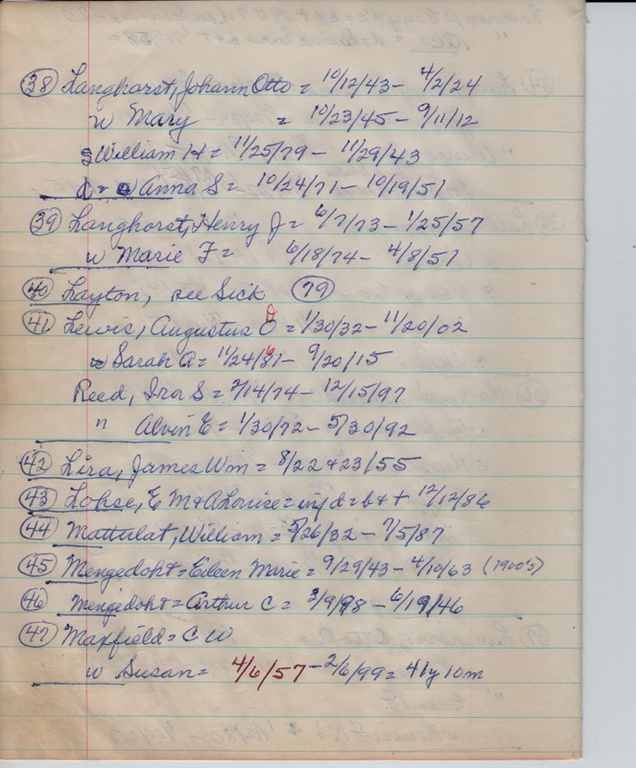 (38) Langhorst, Johann Otto = 10/12/43 - 4/2/24
w Mary = 10/23/45 - 9/11/12
s William H = 11/25/79 - 11/29/43
d = Anna S = 10/24/71 - 10/19/51
(39) Langhorst, Henry J = 6/7/73 - 1/25/57
w Marie F = 6/18/74 - 4/8/51
(40) Layton, see Sick (79)
(41) Lewis, Augustus O = 1/30/32 - 11/20/02
w Sarah A = 11/24/61 - 9/20/15
Reed, Ira S = 2/14/74 - 12/15/97
" Alvin E = 1/30/72 - 5/30/92
(42) Lira, James Wm = 8/22 + 23/55
(43) Lohse, E M + A Louise = inf d = b + + 12/12/86
(44) Mattulat, William = 5/26/32 - 7/5/87
(45) Mengedoht = Eileen Marie = 9/29/43 - 4/10/63 (1900's)
(46) Mengedoht = Arthur C = 2/9/98 - 6/19/46
(47) Maxfield = C W
w Susan = 4/6/57 - 2/6/99 = 41y 10m